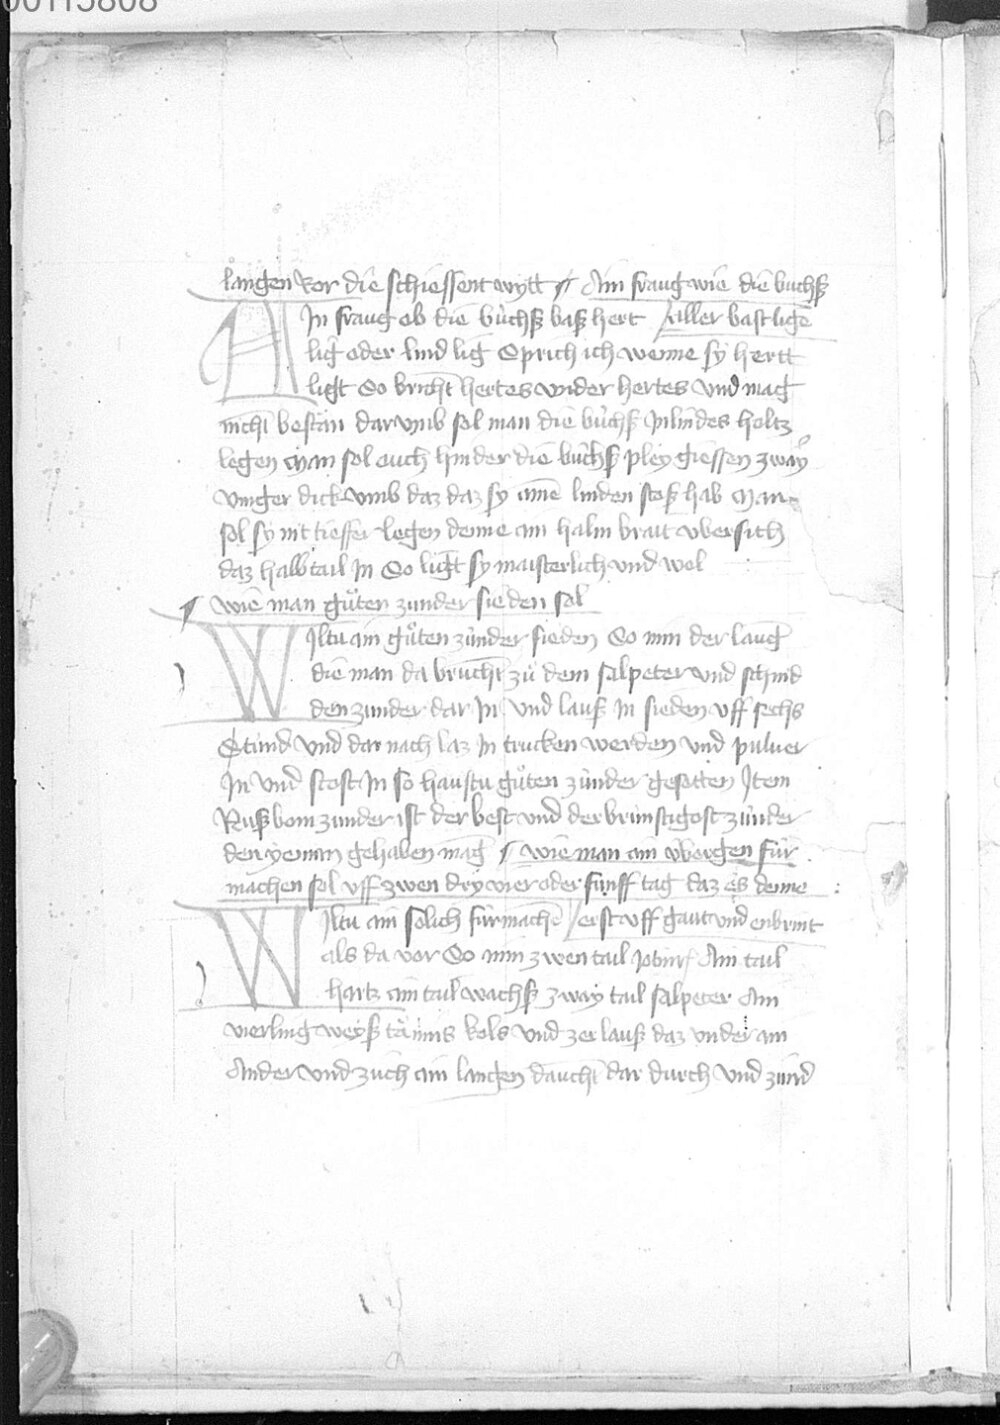 00115808
langen Ror die schiessent wytt Ain fraug wie die buchß
AIn fraug ob die bůchß baß hert aller bast lige
lig oder lind lig Sprich ich wenne sy hertt
ligt So bricht hertes wider hertes vnd mag
nicht bestān dar vmb sol man die bůchß In lindes holtz
legen man sol auch hinder die bůchß pley giessen zway
vinger dick vmb daz daz sy aine linden stoß hab man
sol sy nit tieffer legen denne ain halm brait vbersich
daz halbtail In So ligt sy maisterlich vnd wol
wie man gůten zunder sieden sol
WIltu ain gůten zůnder sieden So nim der laug
die man da brucht zů dem salpeter vnd schnid
den zunder dar In vnd lauß In sieden vff sechs
Stund vnd dar nach laz In trucken werden vnd puluer
In vnd stost In so haustu gůten zůnder gesotten Item
Rußbom zunder ist der best vnd der brünstigost zůnder
den yeman gehaben mag wie man ain vborgen für
machen sol vff zwen dry vier oder fünff tag daz es denne
WIltu ain solich für mache erst vff gaut vnd enbrint
als da vor So nim zwen tail Ain tail
hartz ain tail wachß zway tail salpeter Ain
vierling weyß tännis kols vnd zerlauß daz vnder ain
Ander vnd züch ain langen daucht dar durch vnd zünd